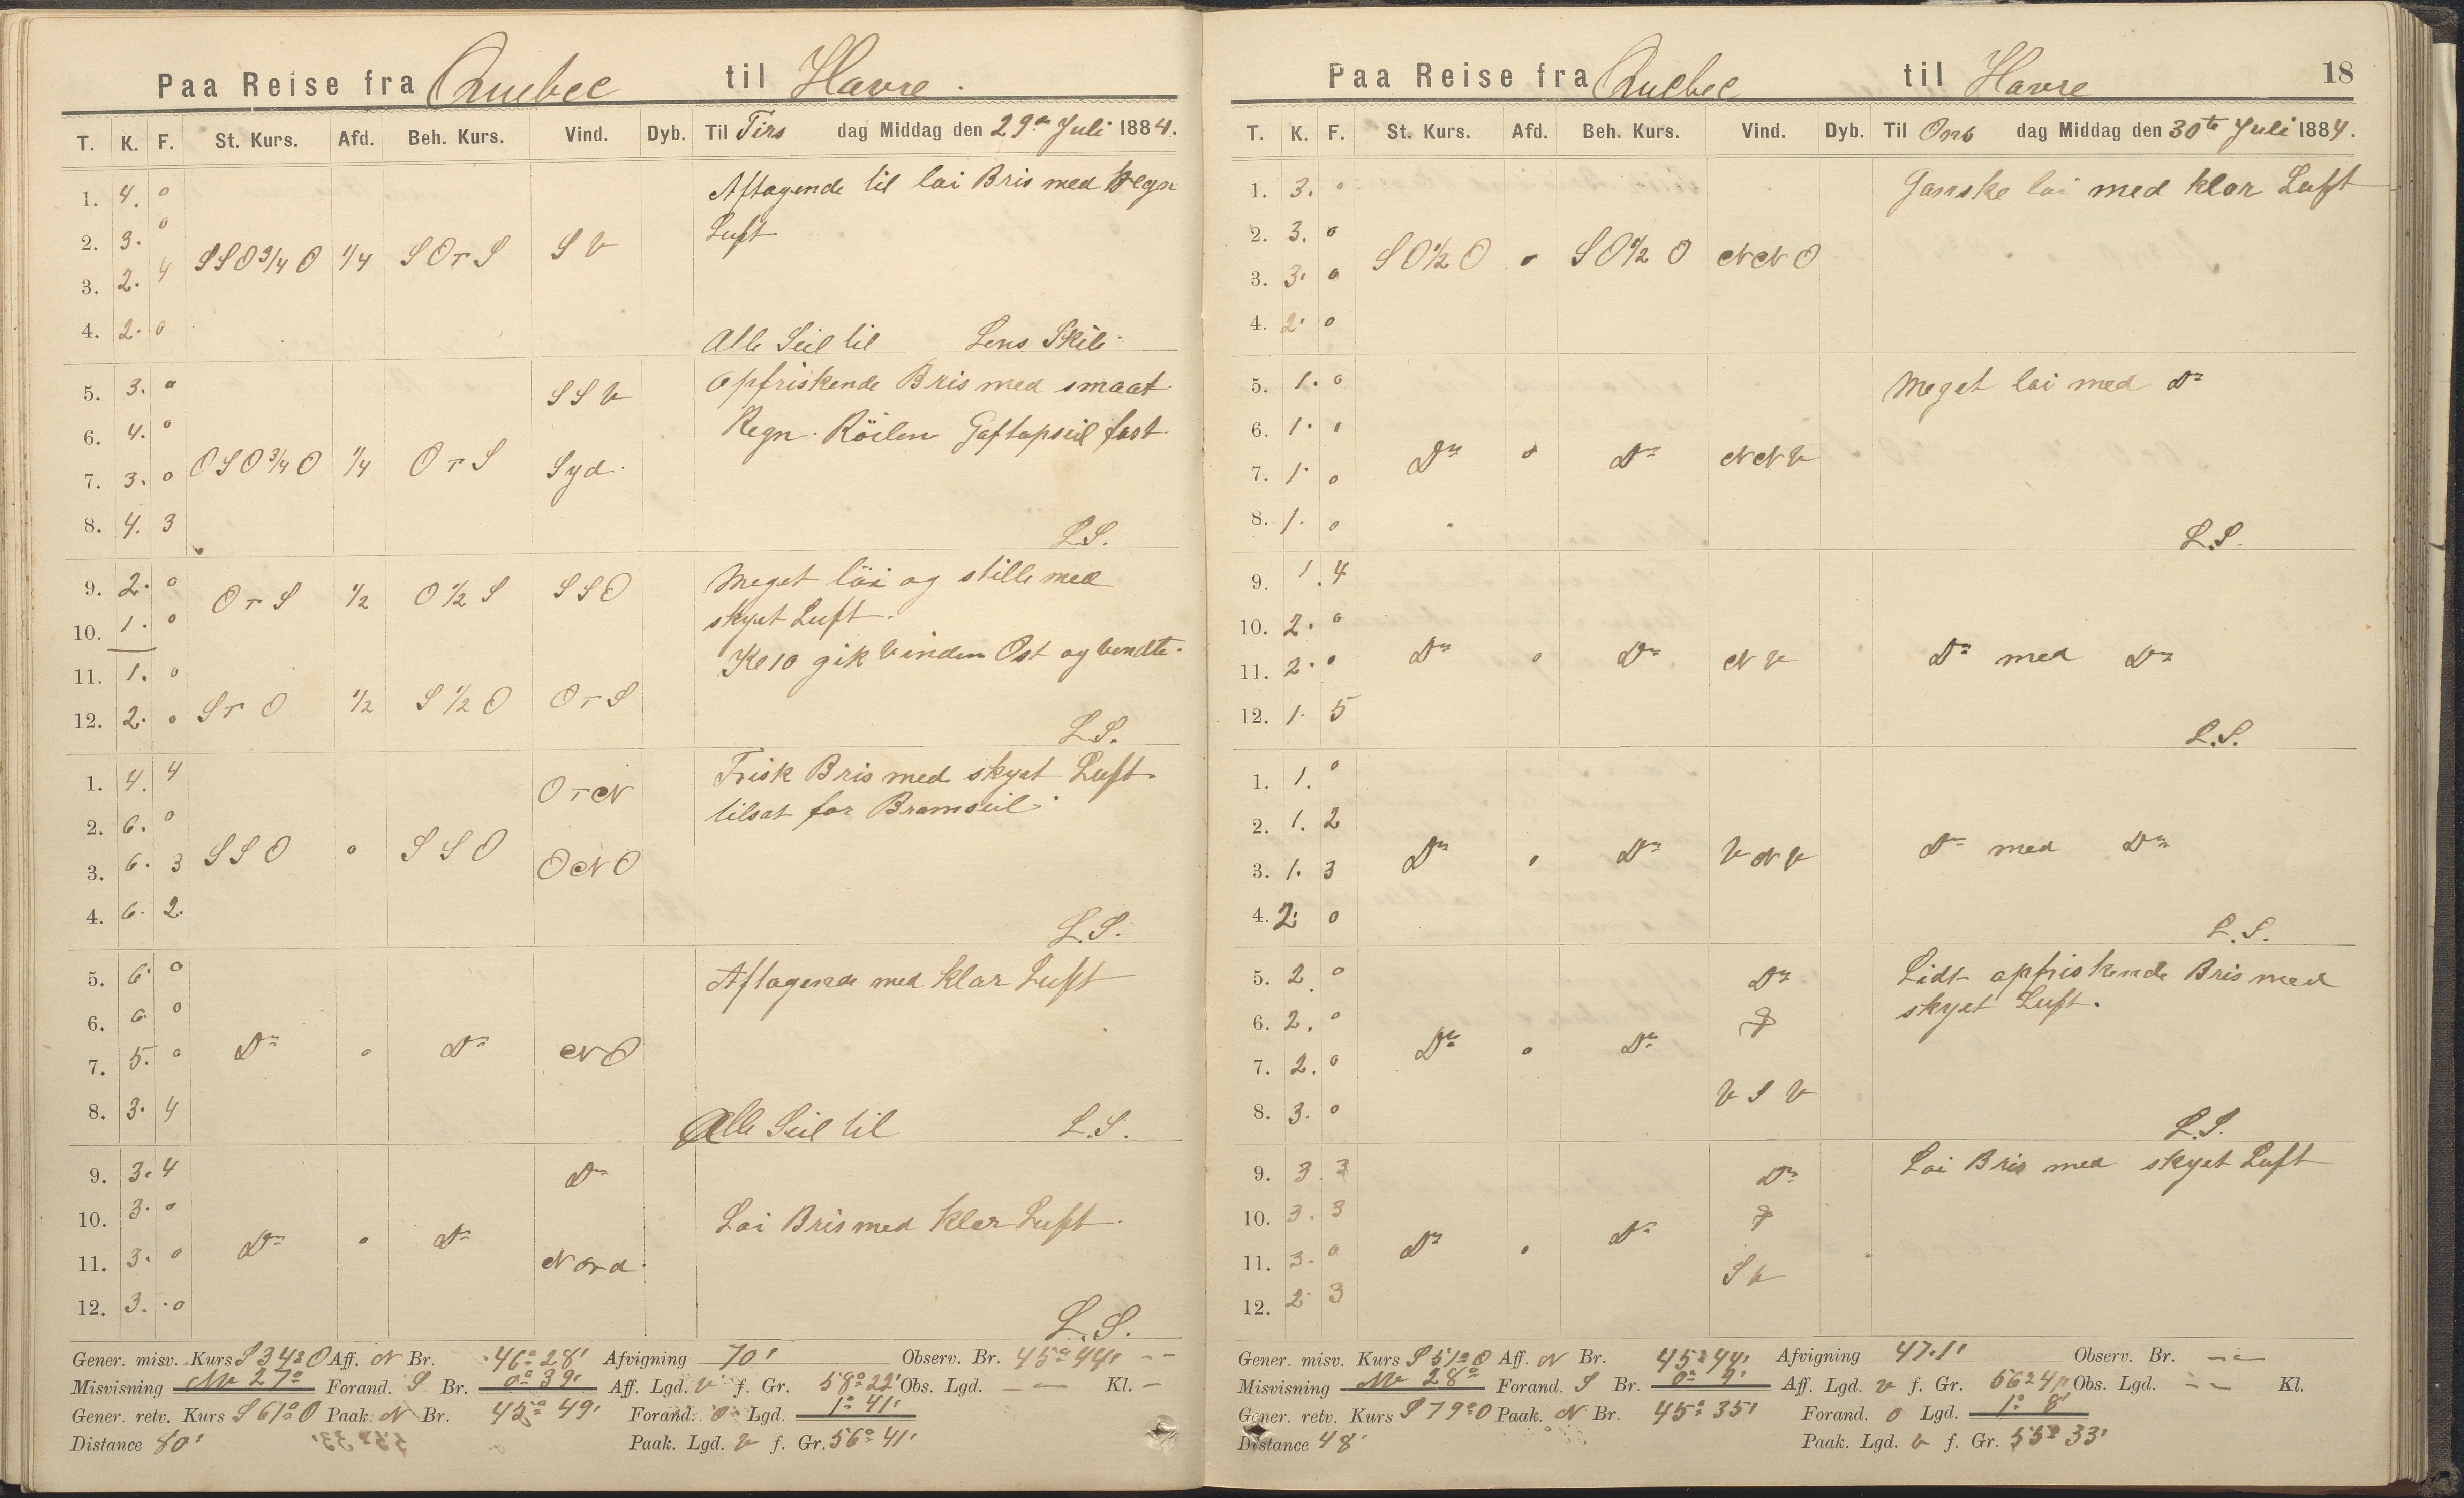 Paa Reise fra Quebec til Havre.
T. K. F. St. Kurs. Afd. Beh. Kurs. Vind. Dyb. Til Tirs dag Middag den 29de Juli 1884.
1. 4. 0 Aftagende til lai Bris med Regn
2. 3. 0 Luft
SSO 3/4 O 1/4 SOTS SV
3. 2. 4
4. 2. 0 Alle Seil til Lens Skib.
5. 3. 0 SSV Opfriskende Bris med smaat
6. 4. 0 Regn. Röilen Gaftopseil fast.
7. 3. 0 OSO 3/4 O 1/4 OTS Syd.
8. 4. 3 L.S.
9. 2. 0 OTS 1/2 O 1/2 S SSO Meget löi og stille med
10. 1. 0 skyet Luft.
11. 1. 0 Kl 10 gik Vinden Ost og vendte.
12. 2. 0 STO 1/2 S 1/2 O OTS
L.S.
1. 4. 4 OTN Frisk Bris med skyet Luft.
2. 6. 0 tilsat for Bramseil.
3. 6. 3 SSO 0 SSO ONO
4. 6. 2. L.S.
5. 6. 0 Aftagende med klar Luft
6. 6. 0
7. 5. 0 Do 0 Do NO
8. 3. 4 Alle Seil til L.S.
9. 3. 4 Do
10. 3. 0 Lai Bris med klar Luft.
11. 3. 0 Do 0 Do Nord.
12. 3. 0 L.S.
Gener. misv. Kurs S 34° O Aff. N Br. 46° 28' Afvigning 70' Observ. Br. 45° 44' --
Misvisning NV 27° Forand. S Br. 0° 39' Aff. Lgd. V f. Gr. 58° 22' Obs. Lgd. -- Kl. -
Gener. retv. Kurs S 61° O Paak. N Br. 45° 49' Forand. O Lgd. 1° 41'
Distance 80' Paak. Lgd. V f. Gr. 56° 41'
Paa Reise fra Quebec til Havre 18
T. K. F. St. Kurs. Afd. Beh. Kurs. Vind. Dyb. Til Ons dag Middag den 30te Juli 1884.
1. 3. 0 Ganske lai med klar Luft
2. 3. 0
SO 1/2 O 0 SO 1/2 O NNO
3. 3. 0
4. 2. 0
5. 1. 0 Meget lai med Do
6. 1. 0
7. 1. 0 Do 0 Do NNV
8. 1. 0 L.S.
9. 1. 4
10. 2. 0
11. 2. 0 Do 0 Do NV Do med Do
12. 1. 5
L.S.
1. 1. 0
2. 1. 2
3. 1. 3 Do 0 Do VNV Do med Do
4. 2. 0 L.S.
5. 2. 0 Do Lidt opfriskende Bris med
6. 2. 0 & skyet Luft.
7. 2. 0 Do 0 Do
8. 3. 0 VSV L.S.
9. 3. 3 Do Lai Bris med skyet Luft
10. 3. 3 &
11. 3. 0 Do 0 Do SV
12. 2. 3
Gener. misv. Kurs S 51° O Aff. N Br. 45° 44' Afvigning 47.1' Observ. Br. --
Misvisning NV 28° Forand. S Br. 0° 9' Aff. Lgd. V f. Gr. 56° 41' Obs. Lgd. -- Kl.
Gener. retv. Kurs S 79° O Paak. N Br. 45° 35' Forand. O Lgd. 1° 8'
Distance 48' Paak. Lgd. V f. Gr. 55° 33'